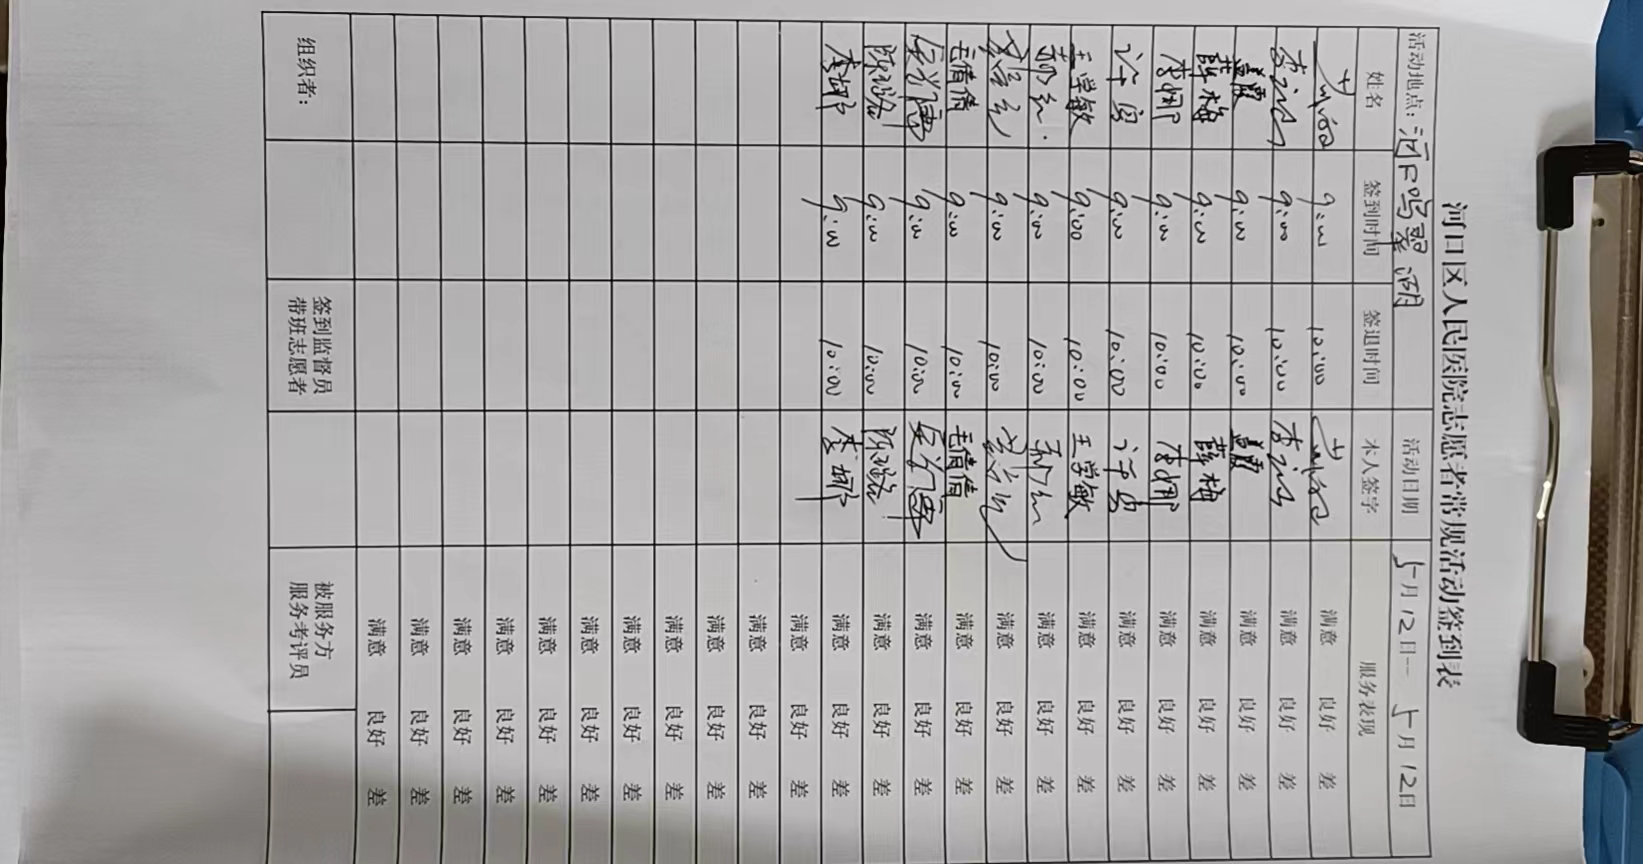 河口区人民医院志愿者常规活动签到表
活动地点：河口鸣翠湖 活动日期 5月12日--5月12日
姓名 签到时间 签退时间 本人签字 服务表现
9:00 10:00 满意 良好 差
9:00 10:00 满意 良好 差
9:00 10:00 满意 良好 差
薛梅 9:00 10:00 薛梅 满意 良好 差
9:00 10:00 满意 良好 差
许勇 9:00 10:00 许勇 满意 良好 差
王学敏 9:00 10:00 王学敏 满意 良好 差
9:00 10:00 满意 良好 差
9:00 10:00 满意 良好 差
毛倩倩 9:00 10:00 毛倩倩 满意 良好 差
9:00 10:00 满意 良好 差
9:00 10:00 满意 良好 差
李娜 9:00 10:00 李娜 满意 良好 差
满意 良好 差
满意 良好 差
满意 良好 差
满意 良好 差
满意 良好 差
满意 良好 差
满意 良好 差
满意 良好 差
满意 良好 差
满意 良好 差
满意 良好 差
组织者： 签到监督员 被服务方
带班志愿者 服务考评员